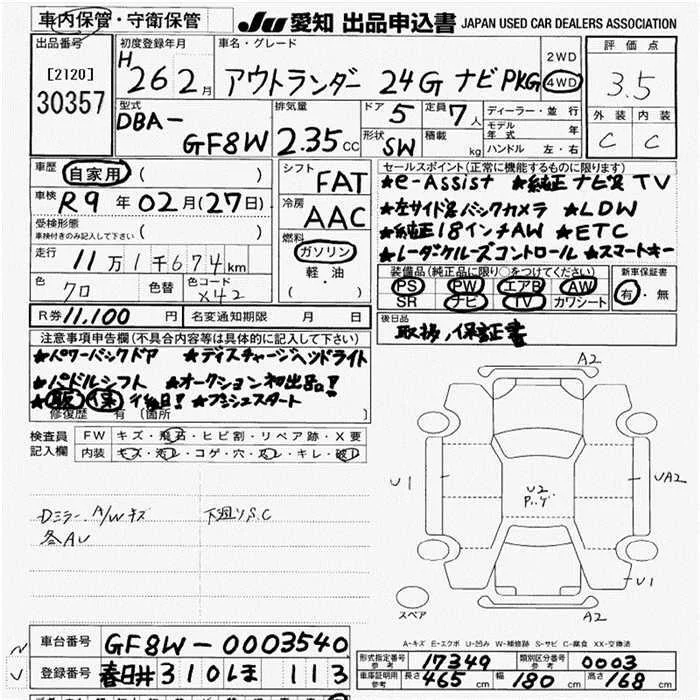 車内保管・守衛保管
JU 愛知 出品申込書 JAPAN USED CAR DEALERS ASSOCIATION
出品番号 初度登録年月 車名・グレード 評価点
[2120]
30357
H 26 2月 アウトランダー 24G ナビPKG 2WD 4WD 3.5
型式 排気量 ドア 5 定員 7人 ディーラー・並行 外装 内装
DBA-GF8W 2.35cc 形状 SW 積載 kg モデル年式 年 C C
ハンドル 左・右
車歴 自家用 ( ) シフト FAT セールスポイント(正常に機能するものに限ります)
車検 R9年02月(27日) 冷房 AAC ★e-Assist ★純正ナビ&TV
受検形態 ( ) ★左サイド&バックカメラ ★LDW
車検付きのみ記入して下さい
燃料 ガソリン ★純正18インチAW ★ETC
走行 11万1千674km 軽・油 ★レーダークルーズコントロール ★スマートキー
色 クロ 色替 色コード X42 ( ) 装備品(純正品に限り○をつけてください) 新車保証書
PS PW エアB AW 有・無
SR ナビ TV カワシート
R券 11,100 円 名変通知期限 月 日 後日品
取扱,保証書
注意事項申告欄(不具合内容等は具体的に記入して下さい)
★パワーバックドア ★ディスチャージヘッドライト
★パドルシフト ★オークション初出品!
★取保後日! ★プッシュスタート
修復歴 有 [箇所 ]
検査員 FW キズ・飛石・ヒビ割・リペア跡・X要
記入欄 内装 キズ・汚レ・コゲ・穴・スレ・キレ・破レ
Dミラー A/Wキズ 下廻りS.C
各AU
A2
U1
U2
UA2
U1
スペア
A2
A-キズ E-エクボ U-凹み W-補修跡 S-サビ C-腐食 XX-交換済
車台番号 GF8W-0003540
登録番号 春日井 310 ほ 113
形式指定番号 参考 17349 類別区分番号 参考 0003
車庫証明用 参考 長さ 465 cm 幅 180 cm 高さ 168 cm